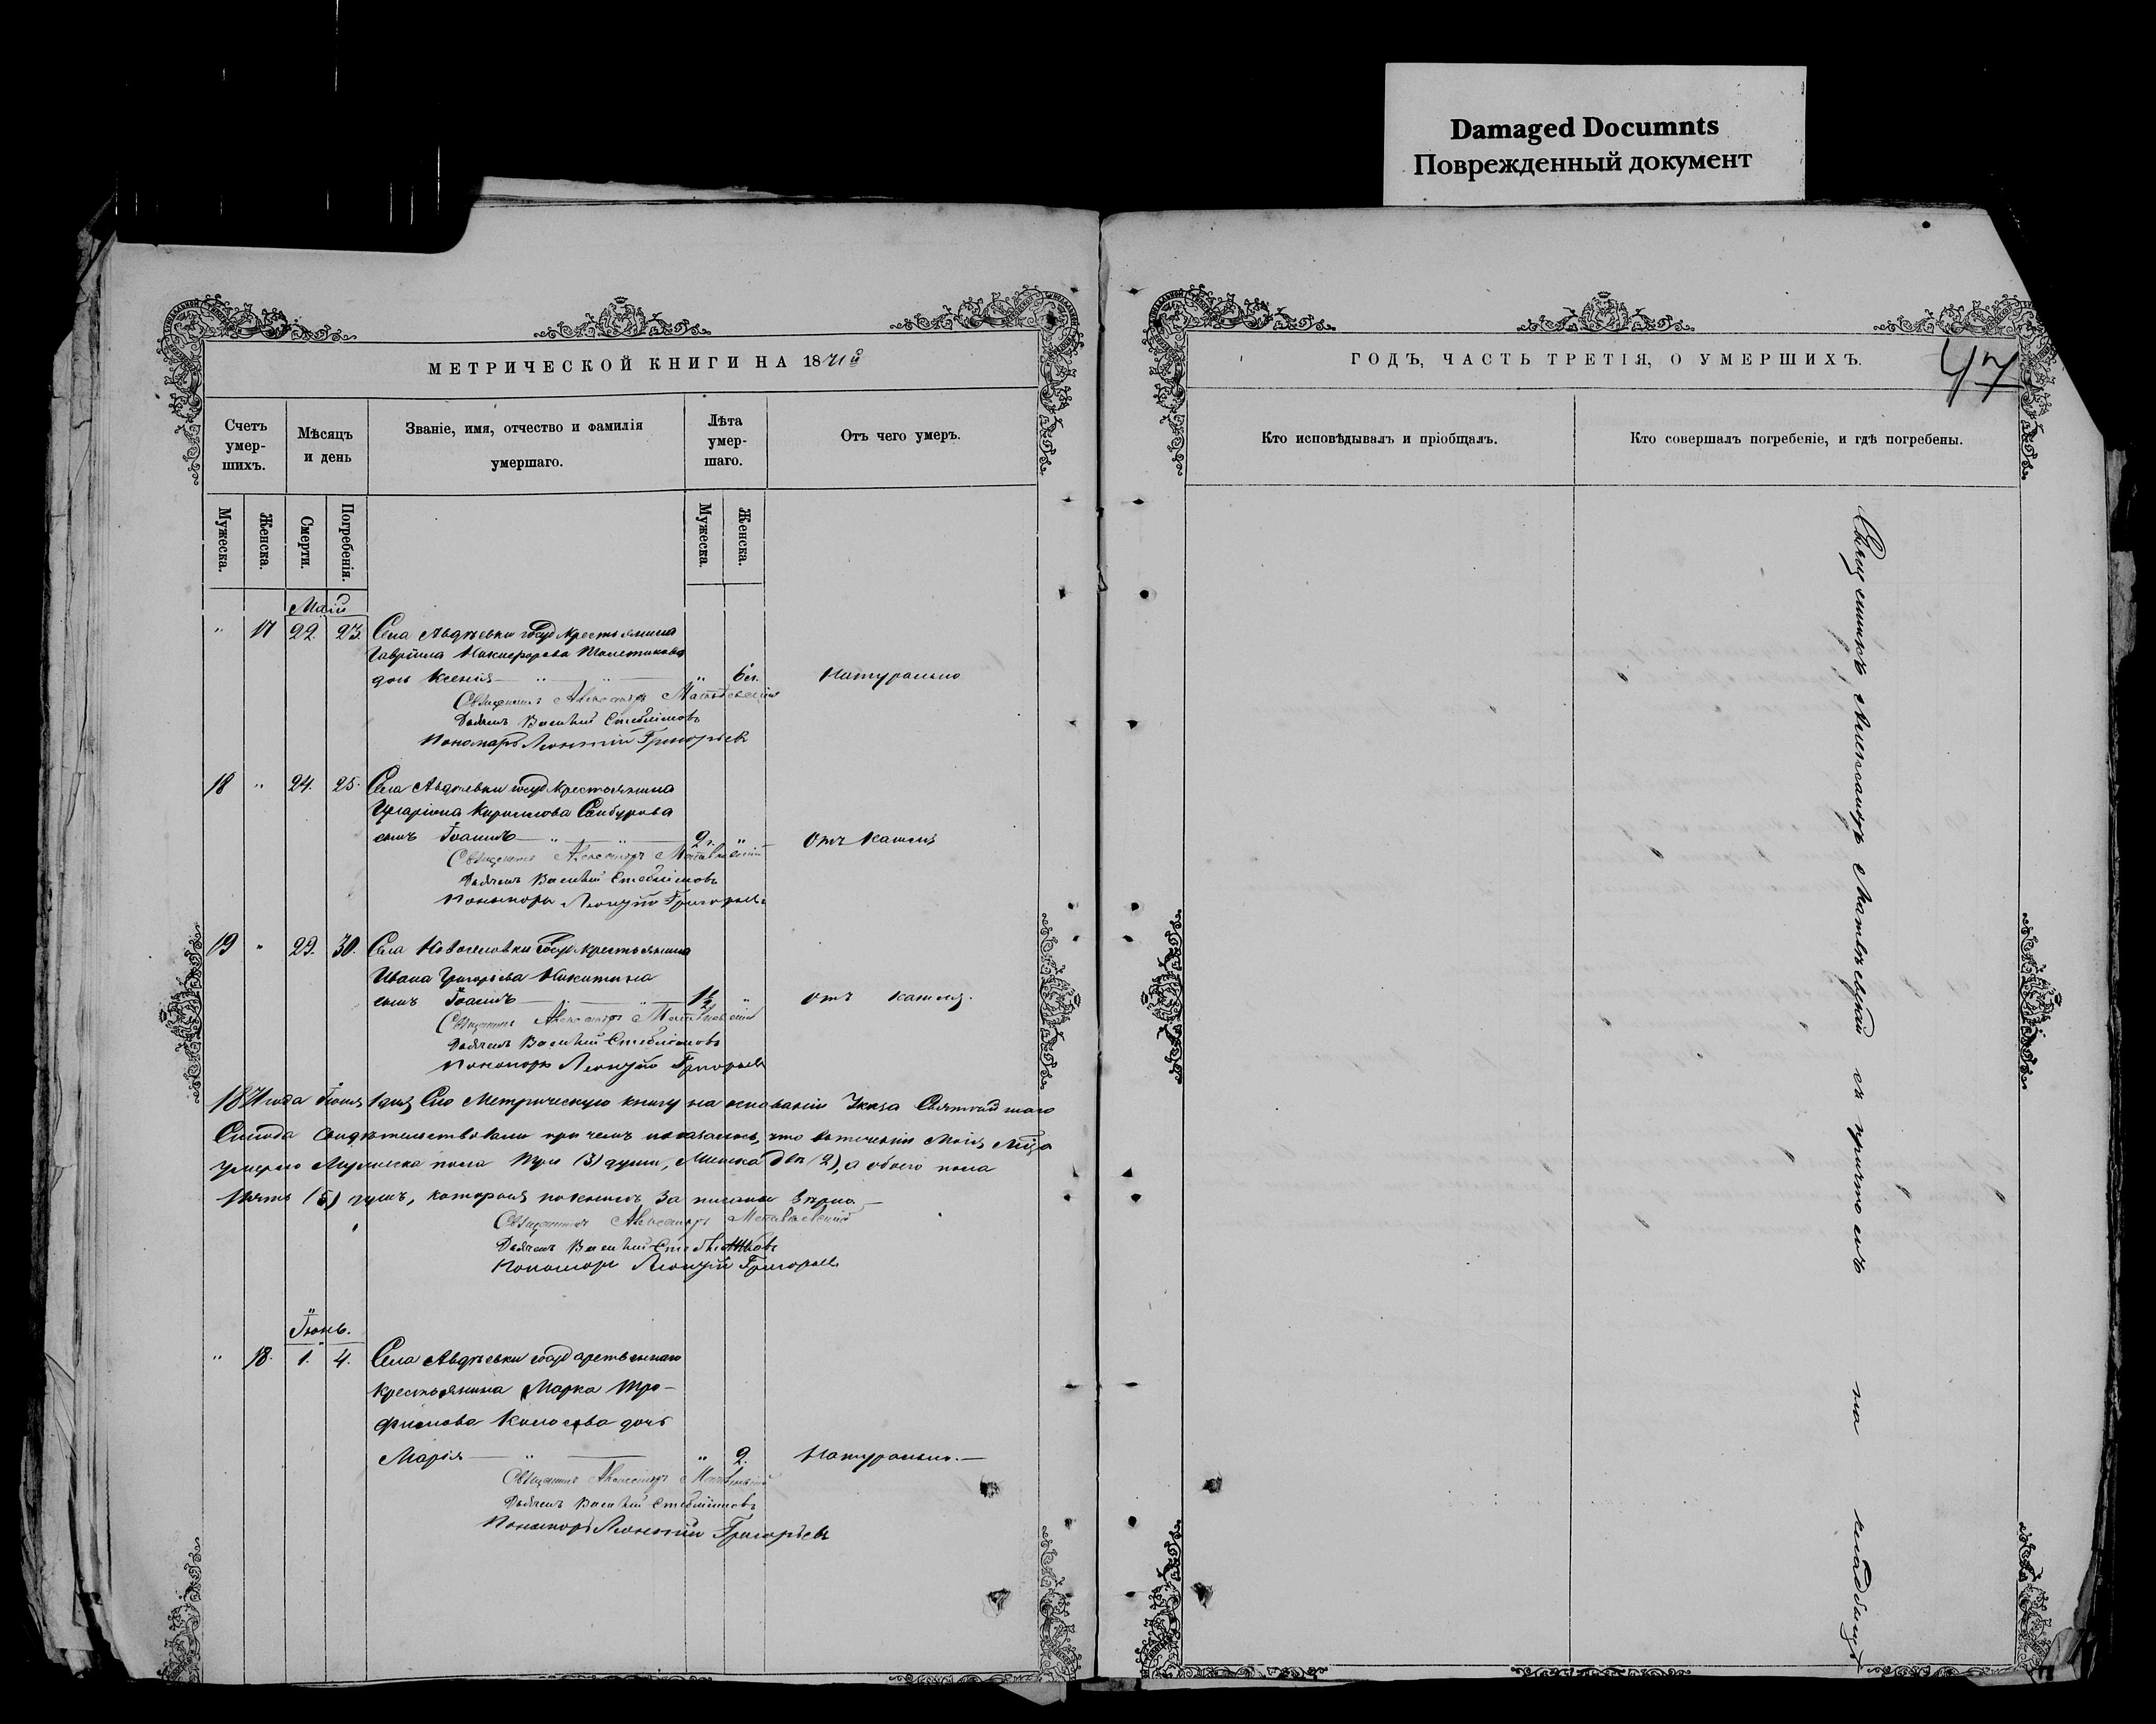 Damaged Documnts
Поврежденный документ
МЕТРИЧЕСКОЙ КНИГИ НА 1871й
Счетъ умер-шихъ.
Мѣсяцъ и день
Званіе, имя, отчество и фамилія умершаго.
Лѣта умер-шаго.
Отъ чего умеръ.
Мужеска.
Женска.
Смерти.
Погребенія.
Мужеска.
Женска.
Маій
" 17 22. 23. Села Авдѣевки госуд крестьянина
Гавріила Никифорова
дочь Ксенія — " — " — " 6 Натурально
Священникъ Александръ Матвѣевскій
Дьячекъ Василій
Пономарь Леонтій Григорьевъ
18 " 24. 25. Села Авдѣевки госуд крестьянина
Иларіона Кирилова
сынъ Іоаннъ — " — " — 2 г. " Отъ кашля
Священникъ Александръ Матвѣевскій
Дьячекъ Василій
Пономарь Леонтій Григорьевъ
19 " 29. 30. Села госуд крестьянина
Ивана Григорьева Никитина
сынъ Іоаннъ — " — " — 1½ " Отъ кашля.
Священникъ Александръ Матвѣевскій
Дьячекъ Василій
Пономарь Леонтій Григорьевъ
1871 года Іюня 1 дня Сію Метрическую книгу на основаніи Указа Святѣйшаго
Синода свидѣтельствовали при чемъ оказалось, что въ теченіи Маія
умерло Мужеска пола три (3) души, Женска двѣ (2), а обоего пола
пять (5) душъ, которыя записаны вѣрно —
Священникъ Александръ Матвѣевскій
Дьячекъ Василій
Пономарь Леонтій Григорьевъ
Іюнь.
" 18. 1. 4. Села Авдѣевки государственнаго
крестьянина Марка Тро-
фимова Колосова дочь
Марія — " — " 2. Натурально. —
Священникъ Александръ Матвѣевскій
Дьячекъ Василій
Пономарь Леонтій Григорьевъ
ГОДЪ, ЧАСТЬ ТРЕТІЯ, О УМЕРШИХЪ.
47
Кто исповѣдывалъ и пріобщалъ.
Кто совершалъ погребеніе, и гдѣ погребены.
Священникъ Александръ Матвѣевскій съ причтомъ на кладбищѣ